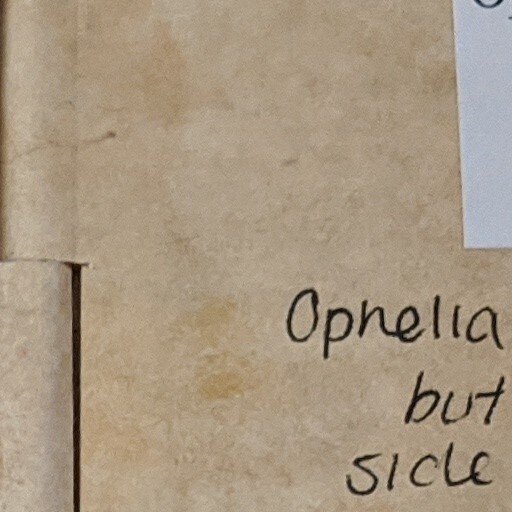 Ophelia
but
side